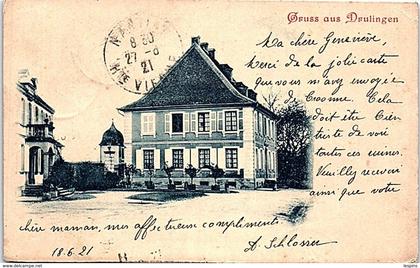 Gruss aus Drulingen
8 30
27-6
21
Hte VIEN
Ma chère Geneviève,
Merci de la jolie carte
que vous m'avez envoyée
de Craonne. Cela
doit être bien
triste de voir
toutes ces ruines.
Veuillez recevoir
ainsi que votre
chère maman, mes affectueux compliments
A. Schlosser
18.6.21